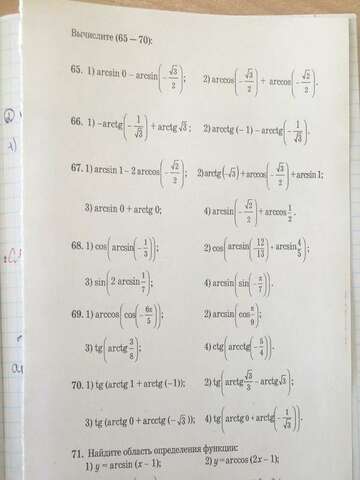 Вычислите (65 — 70):
65. 1) arcsin 0 – arcsin(–√3/2); 2) arccos(–√3/2) + arccos(–√2/2).
66. 1) –arctg(–1/√3) + arctg √3; 2) arcctg (–1) – arctg(–1/√3).
67. 1) arcsin 1 – 2 arccos(–√2/2); 2) arctg(–√3) + arccos(–√3/2) + arcsin 1;
3) arcsin 0 + arctg 0; 4) arcsin(–√2/2) + arccos 1/2.
68. 1) cos(arcsin(–1/3)); 2) cos(arcsin(12/13 + arcsin 4/5);
3) sin(2 arcsin 1/7); 4) arcsin(sin(–π/7)).
69. 1) arccos(cos(–6π/5)); 2) arcsin(cos π/9);
3) tg(arctg 3/8); 4) ctg(arcctg(–5/4)).
70. 1) tg (arctg 1 + arctg (–1)); 2) tg(arctg √3/3 – arctg √3);
3) tg (arctg 0 + arcctg (–√3)); 4) tg(arctg 0 + arctg(–1/√3)).
71. Найдите область определения функции:
1) y = arcsin (x – 1); 2) y = arccos (2x – 1);